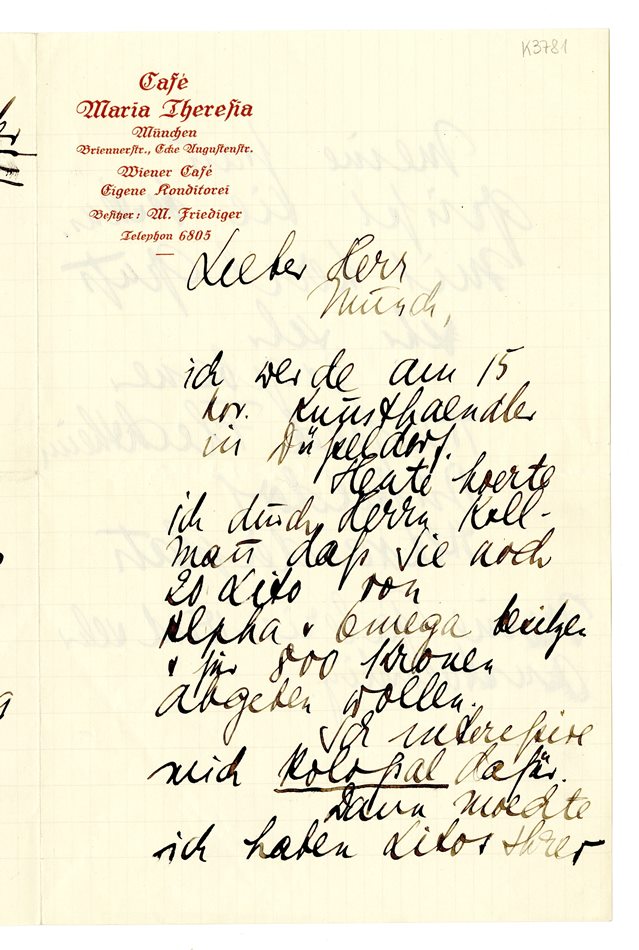 K3781
Café
Maria Theresia
München
Briennerstr., Ecke Augustenstr.
Wiener Café
Eigene Konditorei
Besitzer: M. Friediger
Telephon 6805
Lieber Herr
Munch,
ich werde am 15
Nov. Kunsthaendler
in Düßeldorf.
Heute hoerte
ich durch Herrn Koll-
mañ daß Sie noch
20 Lito von
Alpha & Omega besitzen
& für 800 Kronen
abgeben wollen.
Ich intereßire
mich Koloßal dafür.
Dann moechte
ich haben Litos Ihrer